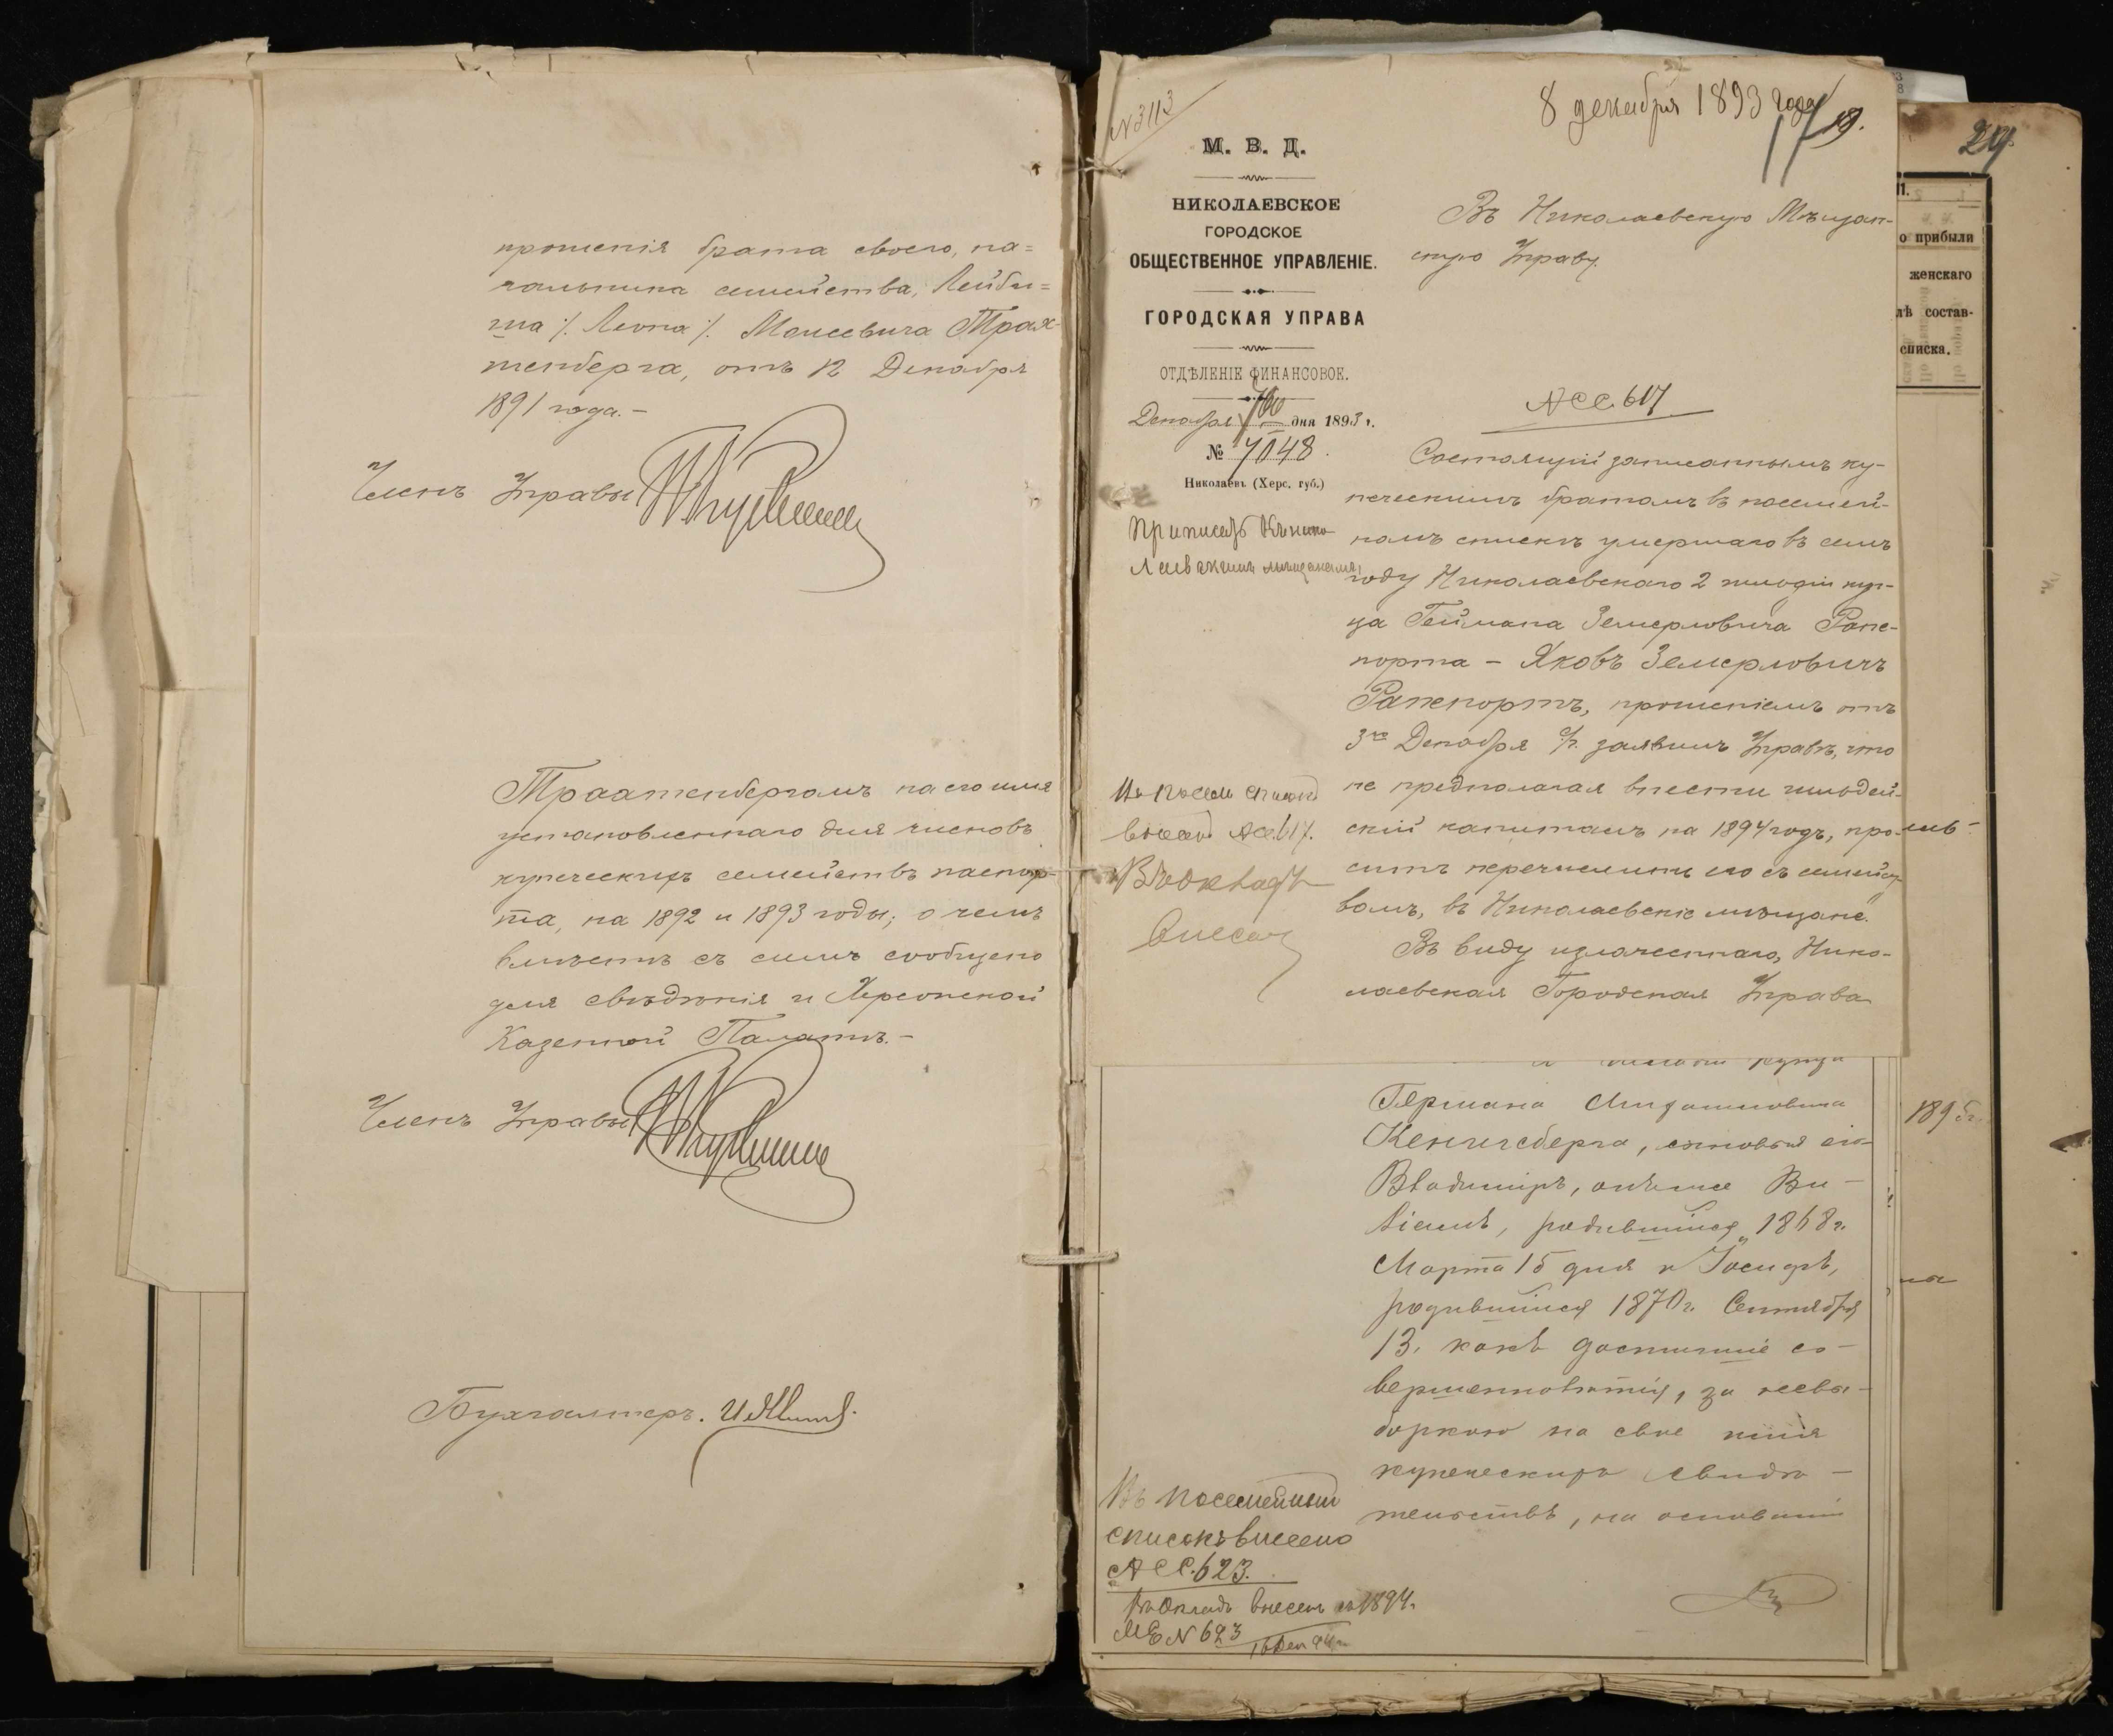 прошенія брата своего, на=
чальника семейства, Лейби=
ша /. Леона /. Моисевича Трах-
тенберга, отъ 12 Декабря
1891 года. -
Членъ Управы
Траатенбергомъ на его имя
установленнаго для членовъ
купеческихъ семействъ паспор-
та, на 1892 и 1893 годы; о чемъ
вмѣстѣ съ симъ сообщено
для свѣдѣнія и Херсонской
Казенной Палатѣ. -
Членъ Управы
Бухгалтеръ.
N 3113
8 декабря 1893 года
19.
М. В. Д.
НИКОЛАЕВСКОЕ
ГОРОДСКОЕ
ОБЩЕСТВЕННОЕ УПРАВЛЕНІЕ.
ГОРОДСКАЯ УПРАВА
ОТДѢЛЕНІЕ ФИНАНСОВОЕ.
Декабря дня 1893 г.
№ 7048.
Николаевъ (Херс. губ.)
Приписать къ Нико-
лаевскимъ мѣщанамъ
На посем списокъ
внесенъ АСС. 617.
Въ окладъ
внесенъ
Въ Николаевскую Мѣщан-
скую Управу.
АСС. 617
Состоящій записаннымъ ку-
печескимъ братомъ въ посемей-
номъ спискѣ умершаго въ семъ
году Николаевскаго 2 гильдіи куп-
ца Геймана Земерловича Рапе-
порта - Яковъ Земерловичъ
Рапепортъ, прошеніемъ отъ
3го Декабря заявилъ Управѣ, что
не предполагая внести гильдей-
скій капиталъ на 1894 годъ, про-
ситъ перечислить его съ семейст
вомъ, въ Николаевскіе мѣщане.
Въ виду изложеннаго, Нико-
лаевская Городская Управа
купца
Германа
Кенигсберга, сыновья его
Владимиръ, онъ же Ви-
ліамъ, родившійся 1868 г.
Марта 15 дня и Іосифъ,
родившійся 1870 г. Сентября
13. какъ достигшіе со-
вершеннолѣтія, за невы-
боркою на свое имя
купеческихъ свидѣ-
тельствъ, на основаніи
Въ посемейный
списокъ внесено
АСС. 623.
Въ окладъ внесенъ съ 1894.
N 623
24
о прибыли
женскаго
лѣ состав-
списка.
189